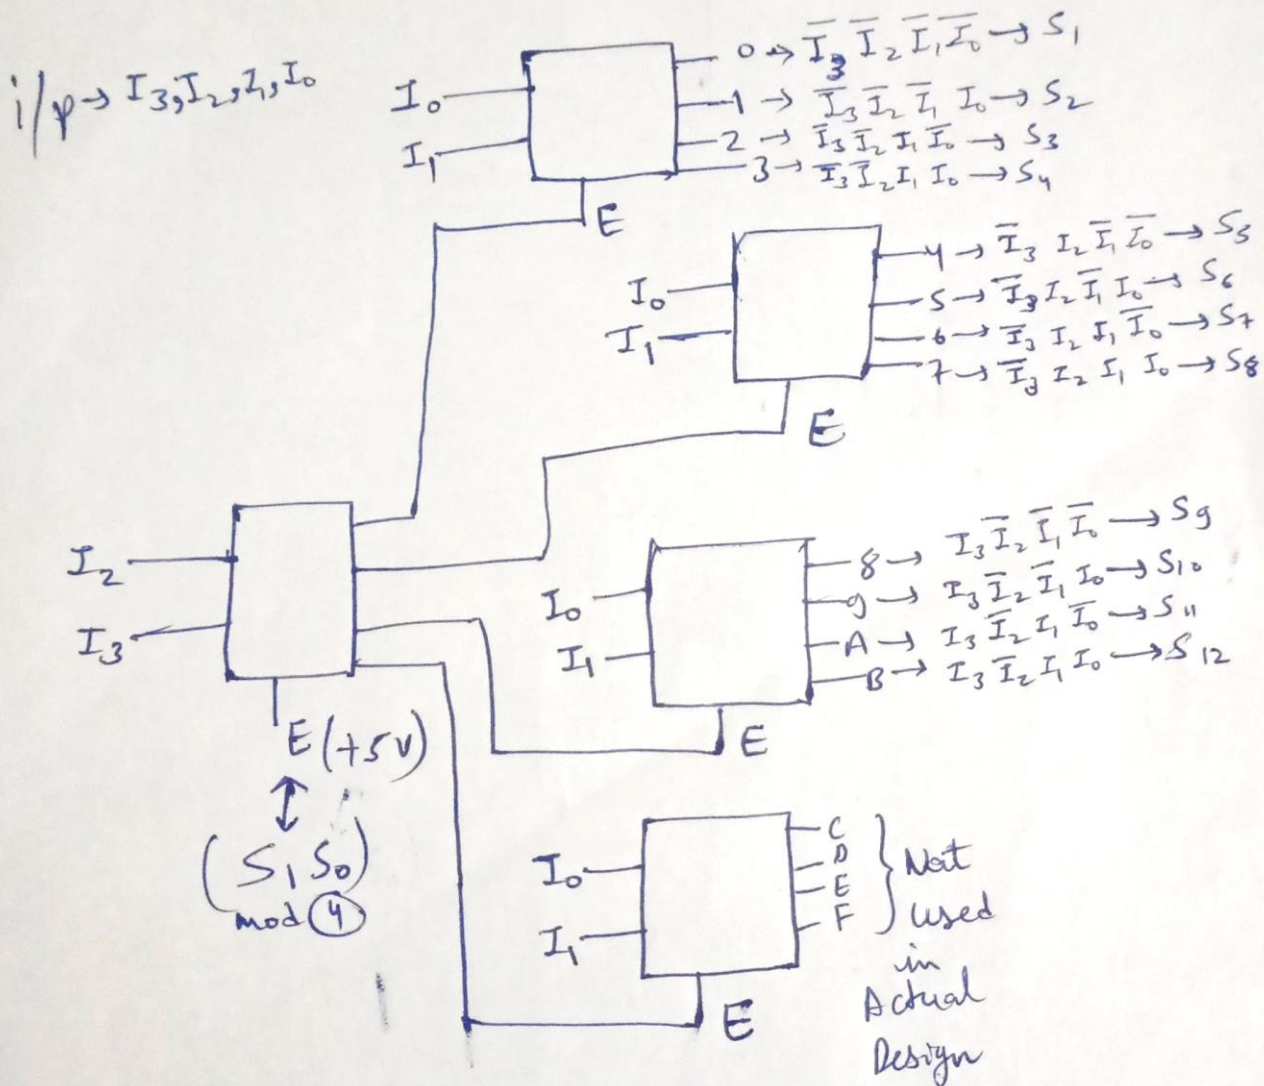 i/p → I₃, I₂, I₁, I₀
I₀
I₁
E
0 → I̅₃ I̅₂ I̅₁ I̅₀ → S₁
1 → I̅₃ I̅₂ I̅₁ I₀ → S₂
2 → I̅₃ I̅₂ I₁ I̅₀ → S₃
3 → I̅₃ I̅₂ I₁ I₀ → S₄
I₀
I₁
E
4 → I̅₃ I₂ I̅₁ I̅₀ → S₅
5 → I̅₃ I₂ I̅₁ I₀ → S₆
6 → I̅₃ I₂ I₁ I̅₀ → S₇
7 → I̅₃ I₂ I₁ I₀ → S₈
I₂
I₃
E (+5V)
(S₁ S₀)
mod 4
I₀
I₁
E
8 → I₃ I̅₂ I̅₁ I̅₀ → S₉
9 → I₃ I̅₂ I̅₁ I₀ → S₁₀
A → I₃ I̅₂ I₁ I̅₀ → S₁₁
B → I₃ I̅₂ I₁ I₀ → S₁₂
I₀
I₁
E
C
D
E
F
Not
used
in
Actual
Design